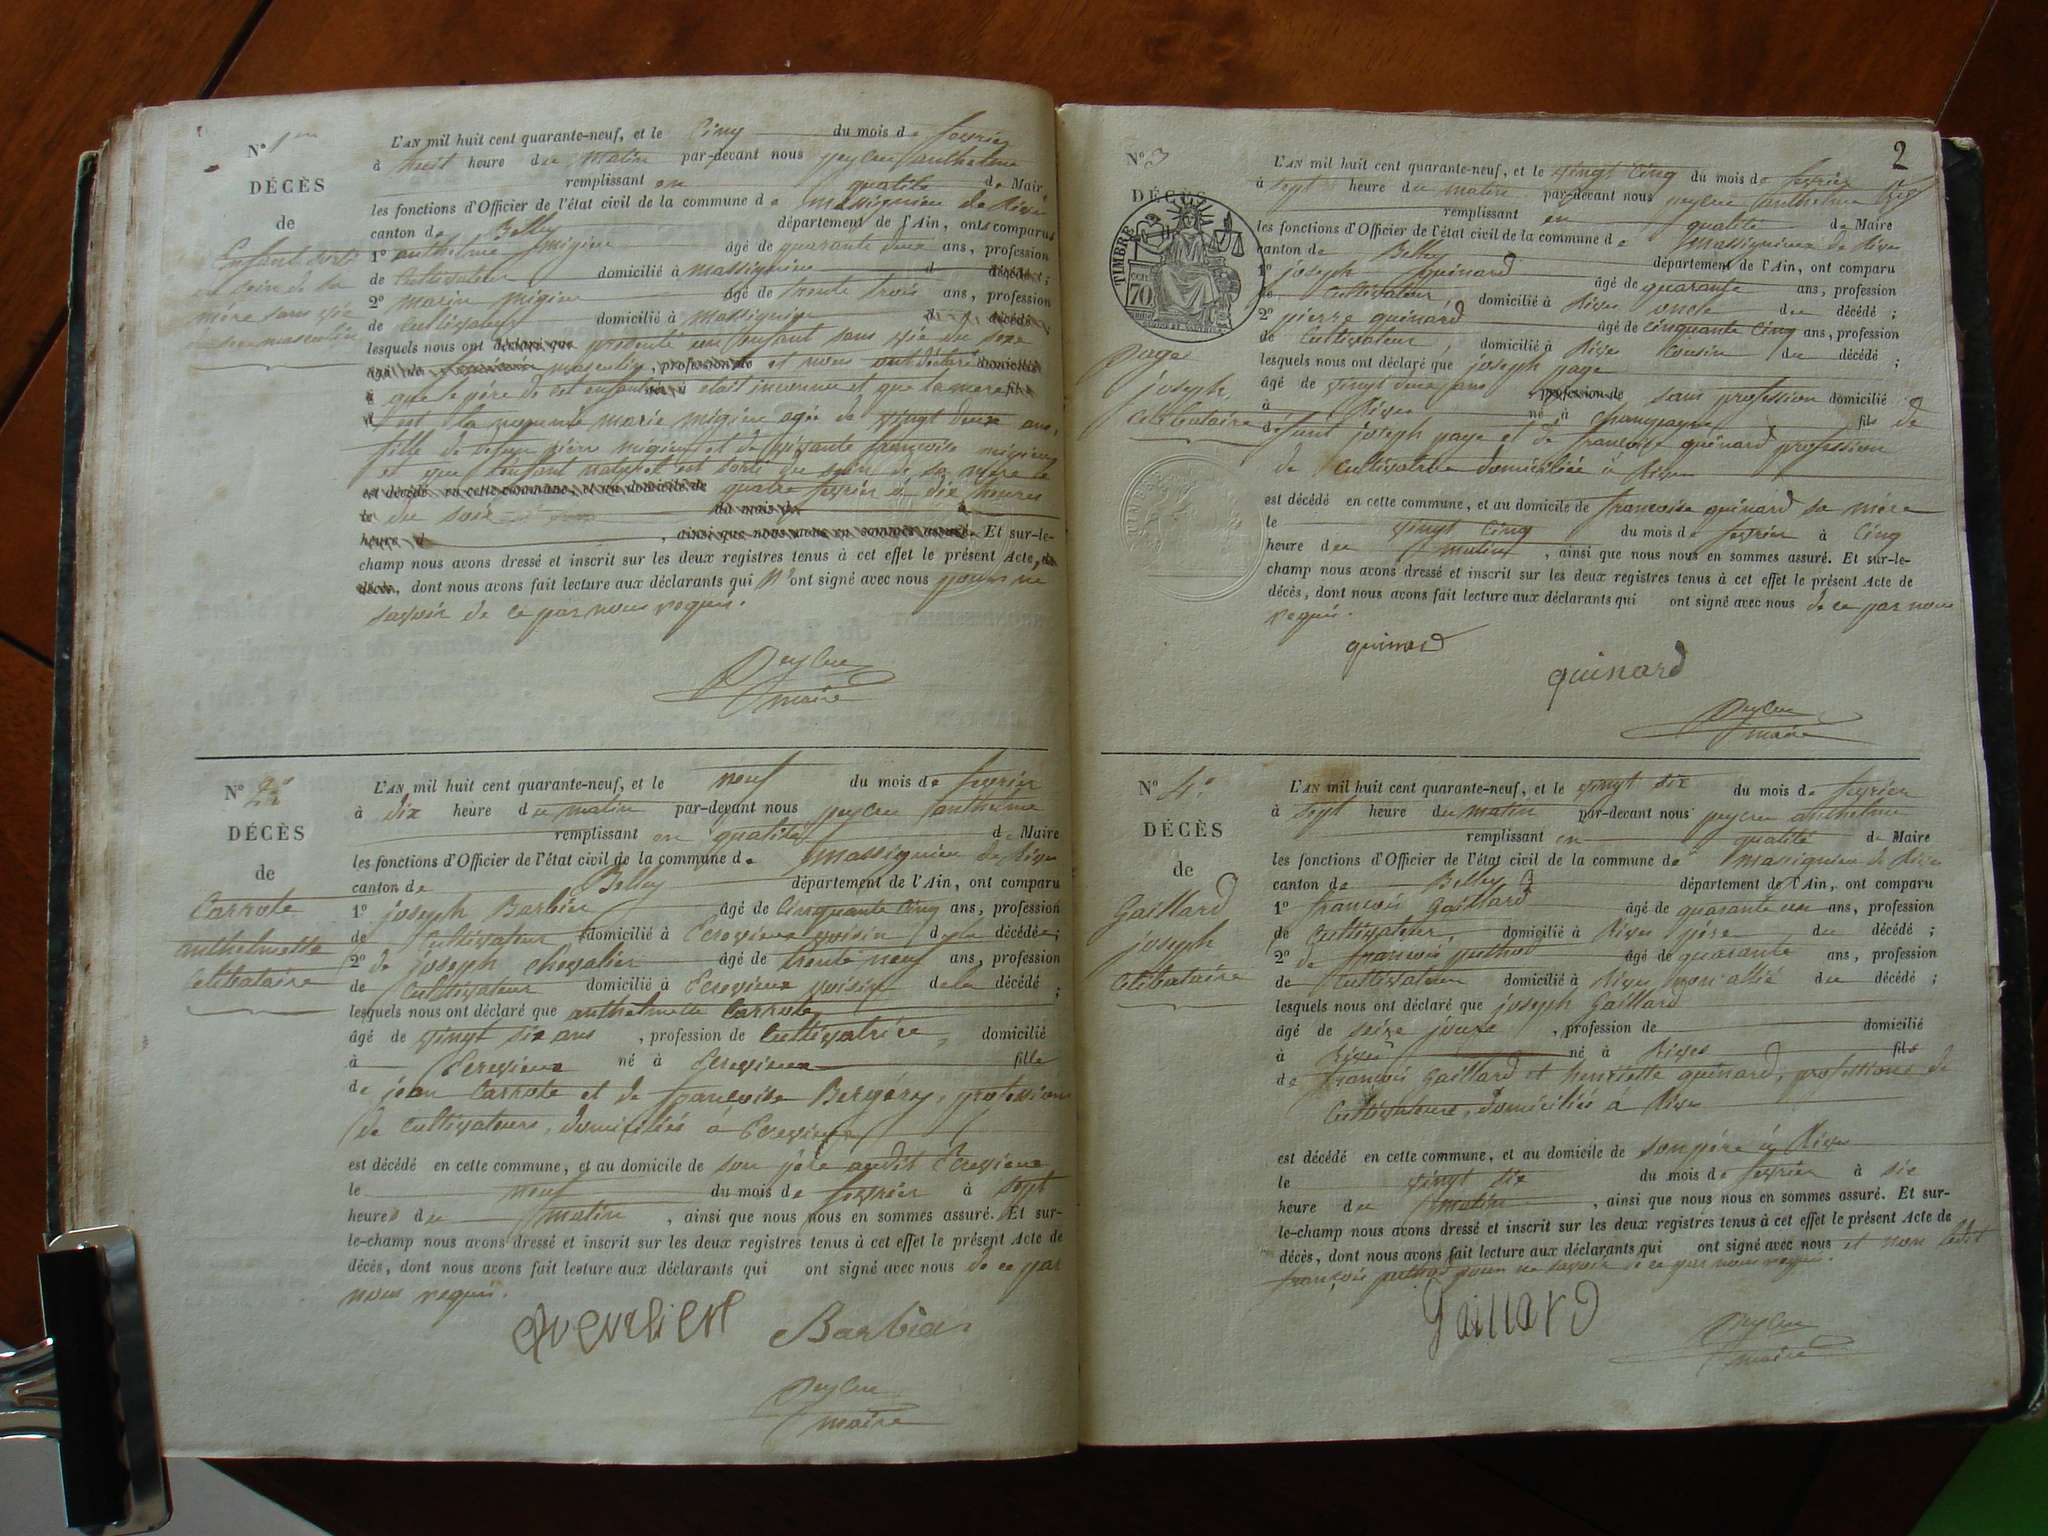 N° 1er
DÉCÈS
de
Enfant sorti
du sein de sa
mère sans vie
du sexe masculin
L'AN mil huit cent quarante-neuf, et le Cinq du mois de fevrier
à huit heure du matin par-devant nous peyleu anthelme
remplissant en qualité de Maire
les fonctions d'Officier de l'état civil de la commune de massignieu de Rives
canton de Belley département de l'Ain, ont comparus
1° anthelme migieu âgé de quarante deux ans, profession
de Cultivateur domicilié à massignieu d décédé ;
2° marin migieu âgé de trente trois ans, profession
de Cultivateur domicilié à massignieu d décédé ;
lesquels nous ont déclaré que présenté un enfant sans vie du sexe
âgé de masculin, profession de et nous ont déclaré domicilié
à que le père de cet enfant né à était inconnu et que la mère fils
d est la nommée marie migieu agée de vingt deux ans,
fille de défunt pière migieu et de vivante françoise migieu
et que l'enfant naturel est sorti du sein de sa mère le
est décédé en cette commune, et au domicile de quatre fevrier à dix heures
le du soir du mois de à
heure d , ainsi que nous nous en sommes assuré. Et sur-le-
champ nous avons dressé et inscrit sur les deux registres tenus à cet effet le présent Acte, de
décès, dont nous avons fait lecture aux déclarants qui n'ont signé avec nous pour ne
savoir de ce par nous requis.
Peyleu
maire
N° 2e
DÉCÈS
de
Carrote
anthelmette
Célibataire
L'AN mil huit cent quarante-neuf, et le neuf du mois de fevrier
à dix heure du matin par-devant nous peyleu anthelme
remplissant en qualité de Maire
les fonctions d'Officier de l'état civil de la commune de massignieu de Rives
canton de Belley département de l'Ain, ont comparu
1° joseph Barbier âgé de Cinquante Cinq ans, profession
de Cultivateur domicilié à Ecrevieux voisin de la décédée ;
2° de joseph chevalier âgé de trente neuf ans, profession
de Cultivateur domicilié à Ecrevieux voisin de la décédé ;
lesquels nous ont déclaré que anthelmette Carrote
âgé de vingt six ans , profession de Cultivatrice, domicilié
à Ecrevieux né à Ecrevieux fille
de jean Carrote et de françoise Bergery, professions
de cultivateurs, domiciliés à Ecrevieux
est décédé en cette commune, et au domicile de son père audit Ecrevieux
le neuf du mois de fevrier à sept
heures du matin , ainsi que nous nous en sommes assuré. Et sur-
le-champ nous avons dressé et inscrit sur les deux registres tenus à cet effet le présent Acte de
décès, dont nous avons fait lecture aux déclarants qui ont signé avec nous de ce par
nous requis.
chevalier Barbier
Peyleu
maire
2
N° 3
DÉCÈS
TIMBRE
70
page
joseph
Célibataire
L'AN mil huit cent quarante-neuf, et le vingt Cinq du mois de fevrier
à sept heure du matin par-devant nous peyleu anthelme
remplissant en qualité de Maire
les fonctions d'Officier de l'état civil de la commune de massignieux de Rives
canton de Belley département de l'Ain, ont comparu
1° joseph guinard âgé de quarante ans, profession
de Cultivateur, domicilié à Rives oncle du décédé ;
2° pierre guinard âgé de cinquante Cinq ans, profession
de Cultivateur, domicilié à Rives Cousin du décédé ;
lesquels nous ont déclaré que joseph page
âgé de vingt deux ans profession de sans profession domicilié
à Rives né à champagne fils de
défunt joseph page et de françoise guinard profession
de Cultivatrice domiciliée à Rives
est décédé en cette commune, et au domicile de francoise guinard sa mère
le vingt Cinq du mois de fevrier à Cinq
heure du matin , ainsi que nous nous en sommes assuré. Et sur-le-
champ nous avons dressé et inscrit sur les deux registres tenus à cet effet le présent Acte de
décès, dont nous avons fait lecture aux déclarants qui ont signé avec nous de ce par nous
requis.
guinard
guinard
Peyleu
maire
N° 4e
DÉCÈS
de
Gaillard
joseph
Célibataire
L'AN mil huit cent quarante-neuf, et le vingt six du mois de fevrier
à sept heure du matin par-devant nous peyleu anthelme
remplissant en qualité de Maire
les fonctions d'Officier de l'état civil de la commune de massignieu de Rives
canton de Belley département de l'Ain, ont comparu
1° françois Gaillard âgé de quarante un ans, profession
de Cultivateur, domicilié à Rives père du décédé ;
2° de françois puthod âgé de quarante ans, profession
de Cultivateur domicilié à Rives non allié du décédé ;
lesquels nous ont déclaré que joseph Gaillard
âgé de seize jours , profession de domicilié
à Rives né à Rives fils
de françois Gaillard et henriette guinard, professions de
Cultivateurs, domiciliés à Rives
est décédé en cette commune, et au domicile de son père à Rives
le vingt six du mois de fevrier à six
heure du matin , ainsi que nous nous en sommes assuré. Et sur-
le-champ nous avons dressé et inscrit sur les deux registres tenus à cet effet le présent Acte de
décès, dont nous avons fait lecture aux déclarants qui ont signé avec nous et non ledit
françois puthod pour ne savoir de ce par nous requis.
Gaillard
Peyleu
maire